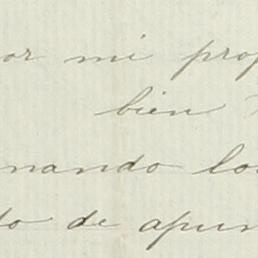 or mi prop
bien
nando los
do de apun